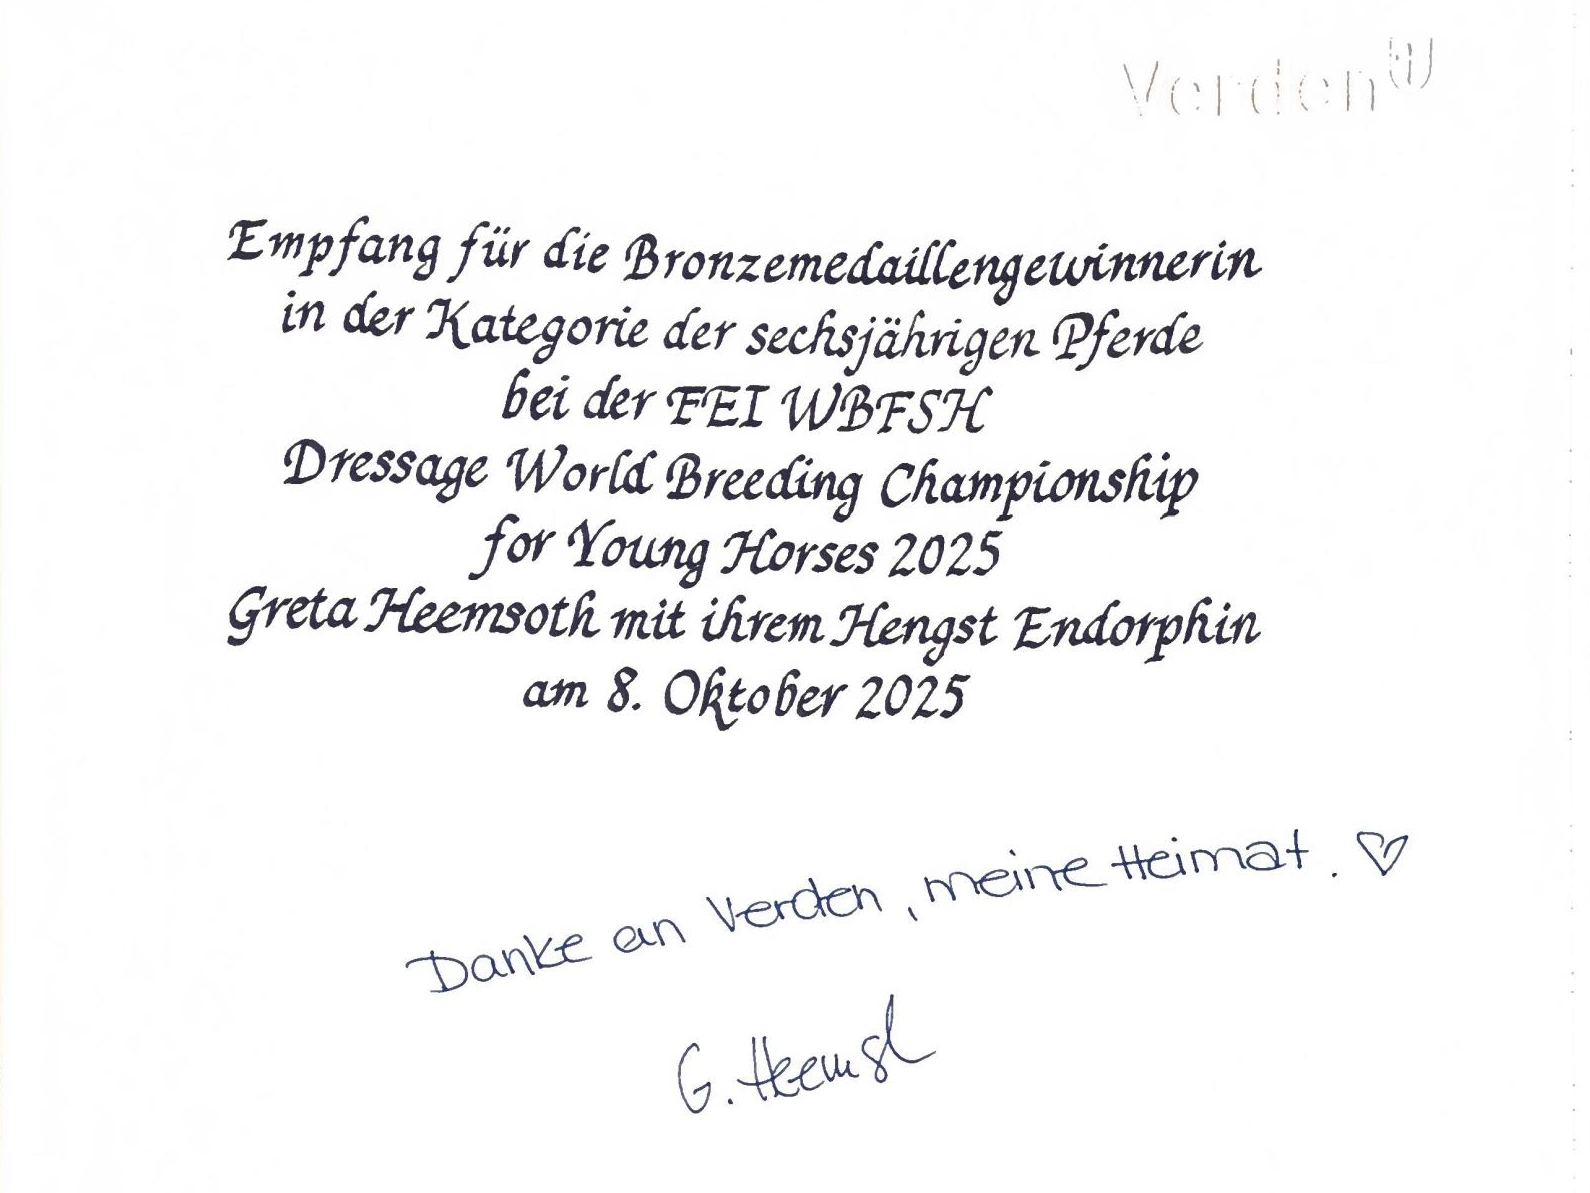 Verden
Empfang für die Bronzemedaillengewinnerin
in der Kategorie der sechsjährigen Pferde
bei der FEI WBFSH
Dressage World Breeding Championship
for Young Horses 2025
Greta Heemsoth mit ihrem Hengst Endorphin
am 8. Oktober 2025
Danke an Verden, meine Heimat. ♡
G. Heemst